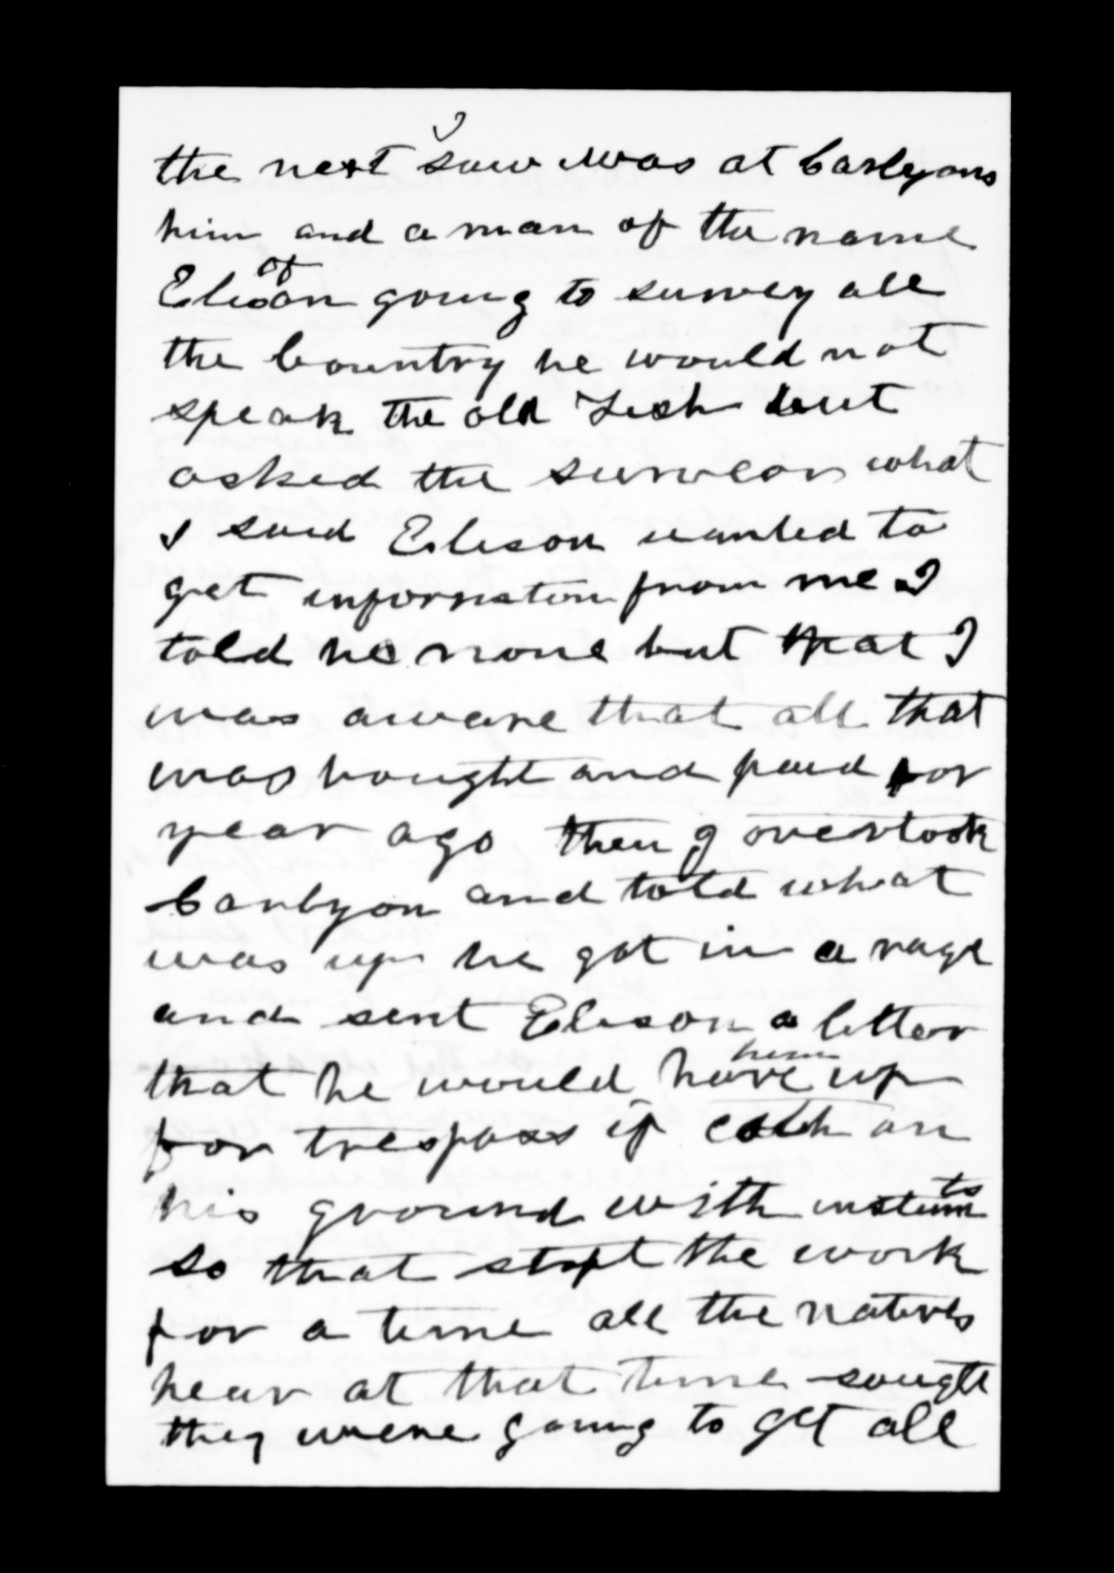 the next I saw was at Carlyons
him and a man of the name
of Elison going to survey all
the Country he would not
speak the old but
asked the survear what
I said Elison wanted to
get informaton from me I
told he none but that I
was aware that all that
was bought and paid for
year ago then I overtook
Carlyon and told what
was up he got in a rage
and sent Elison a letter
that he would have him up
for trespass if catch an
his ground with
so that stopt the work
for a time all the natives
hear at that time
they were going to get all